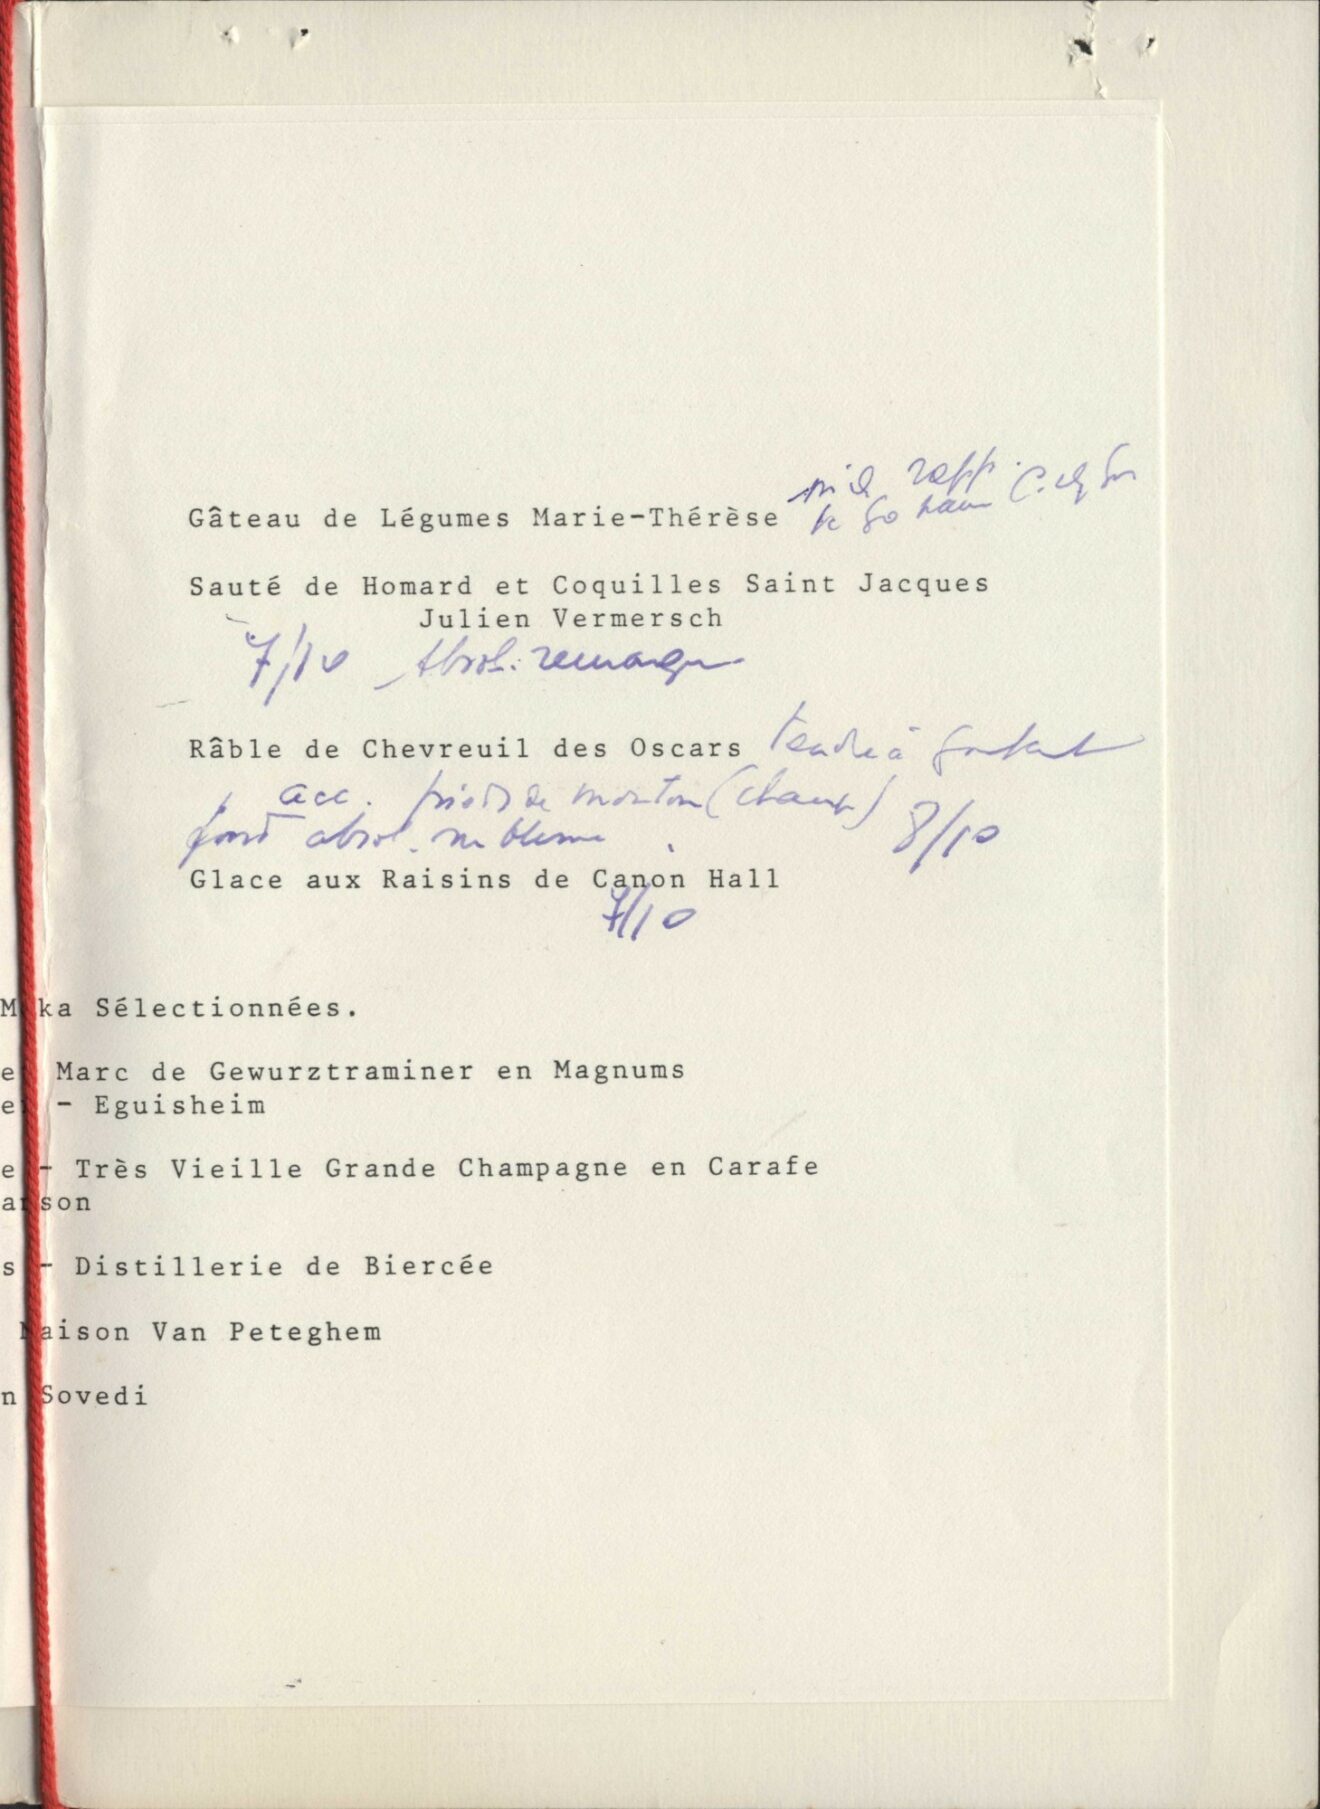 Gâteau de Légumes Marie-Thérèse
Sauté de Homard et Coquilles Saint Jacques
Julien Vermersch
7/10 Absol. remarqu
Râble de Chevreuil des Oscars tendre à
acc. pieds de mouton (champ) 8/10
fond absol. sublime
Glace aux Raisins de Canon Hall
7/10
M ka Sélectionnées.
e Marc de Gewurztraminer en Magnums
e - Eguisheim
e - Très Vieille Grande Champagne en Carafe
anson
s - Distillerie de Biercée
Maison Van Peteghem
n Sovedi